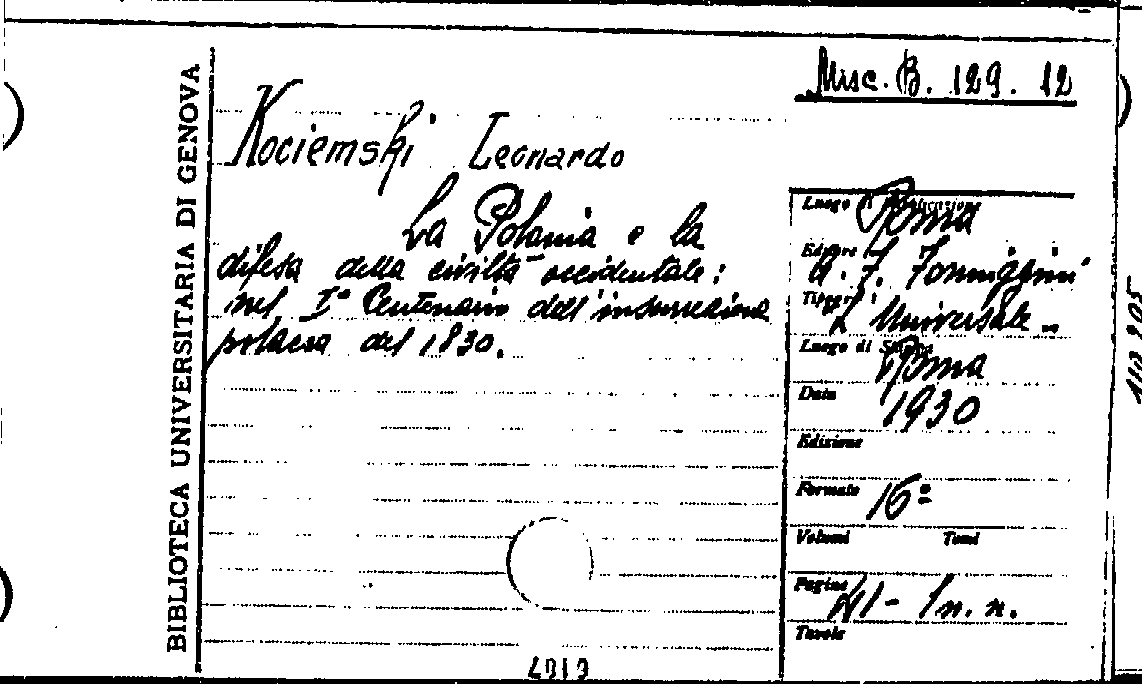 BIBLIOTECA UNIVERSITARIA DI GENOVA
Misc. B. 129. 12
Kociemski Leonardo
La Polonia e la
difesa della civiltà occidentale:
nel Iº Centenario dell'insurrezione
polacca del 1830.
Luogo di Pubblicazione Roma
Editore A. F. Formiggini
Tipografia L'Universale
Luogo di Stampa Roma
Data 1930
Edizione
Formato 16º
Volumi Tomi
Pagine 41 - 1 n. n.
Tavole